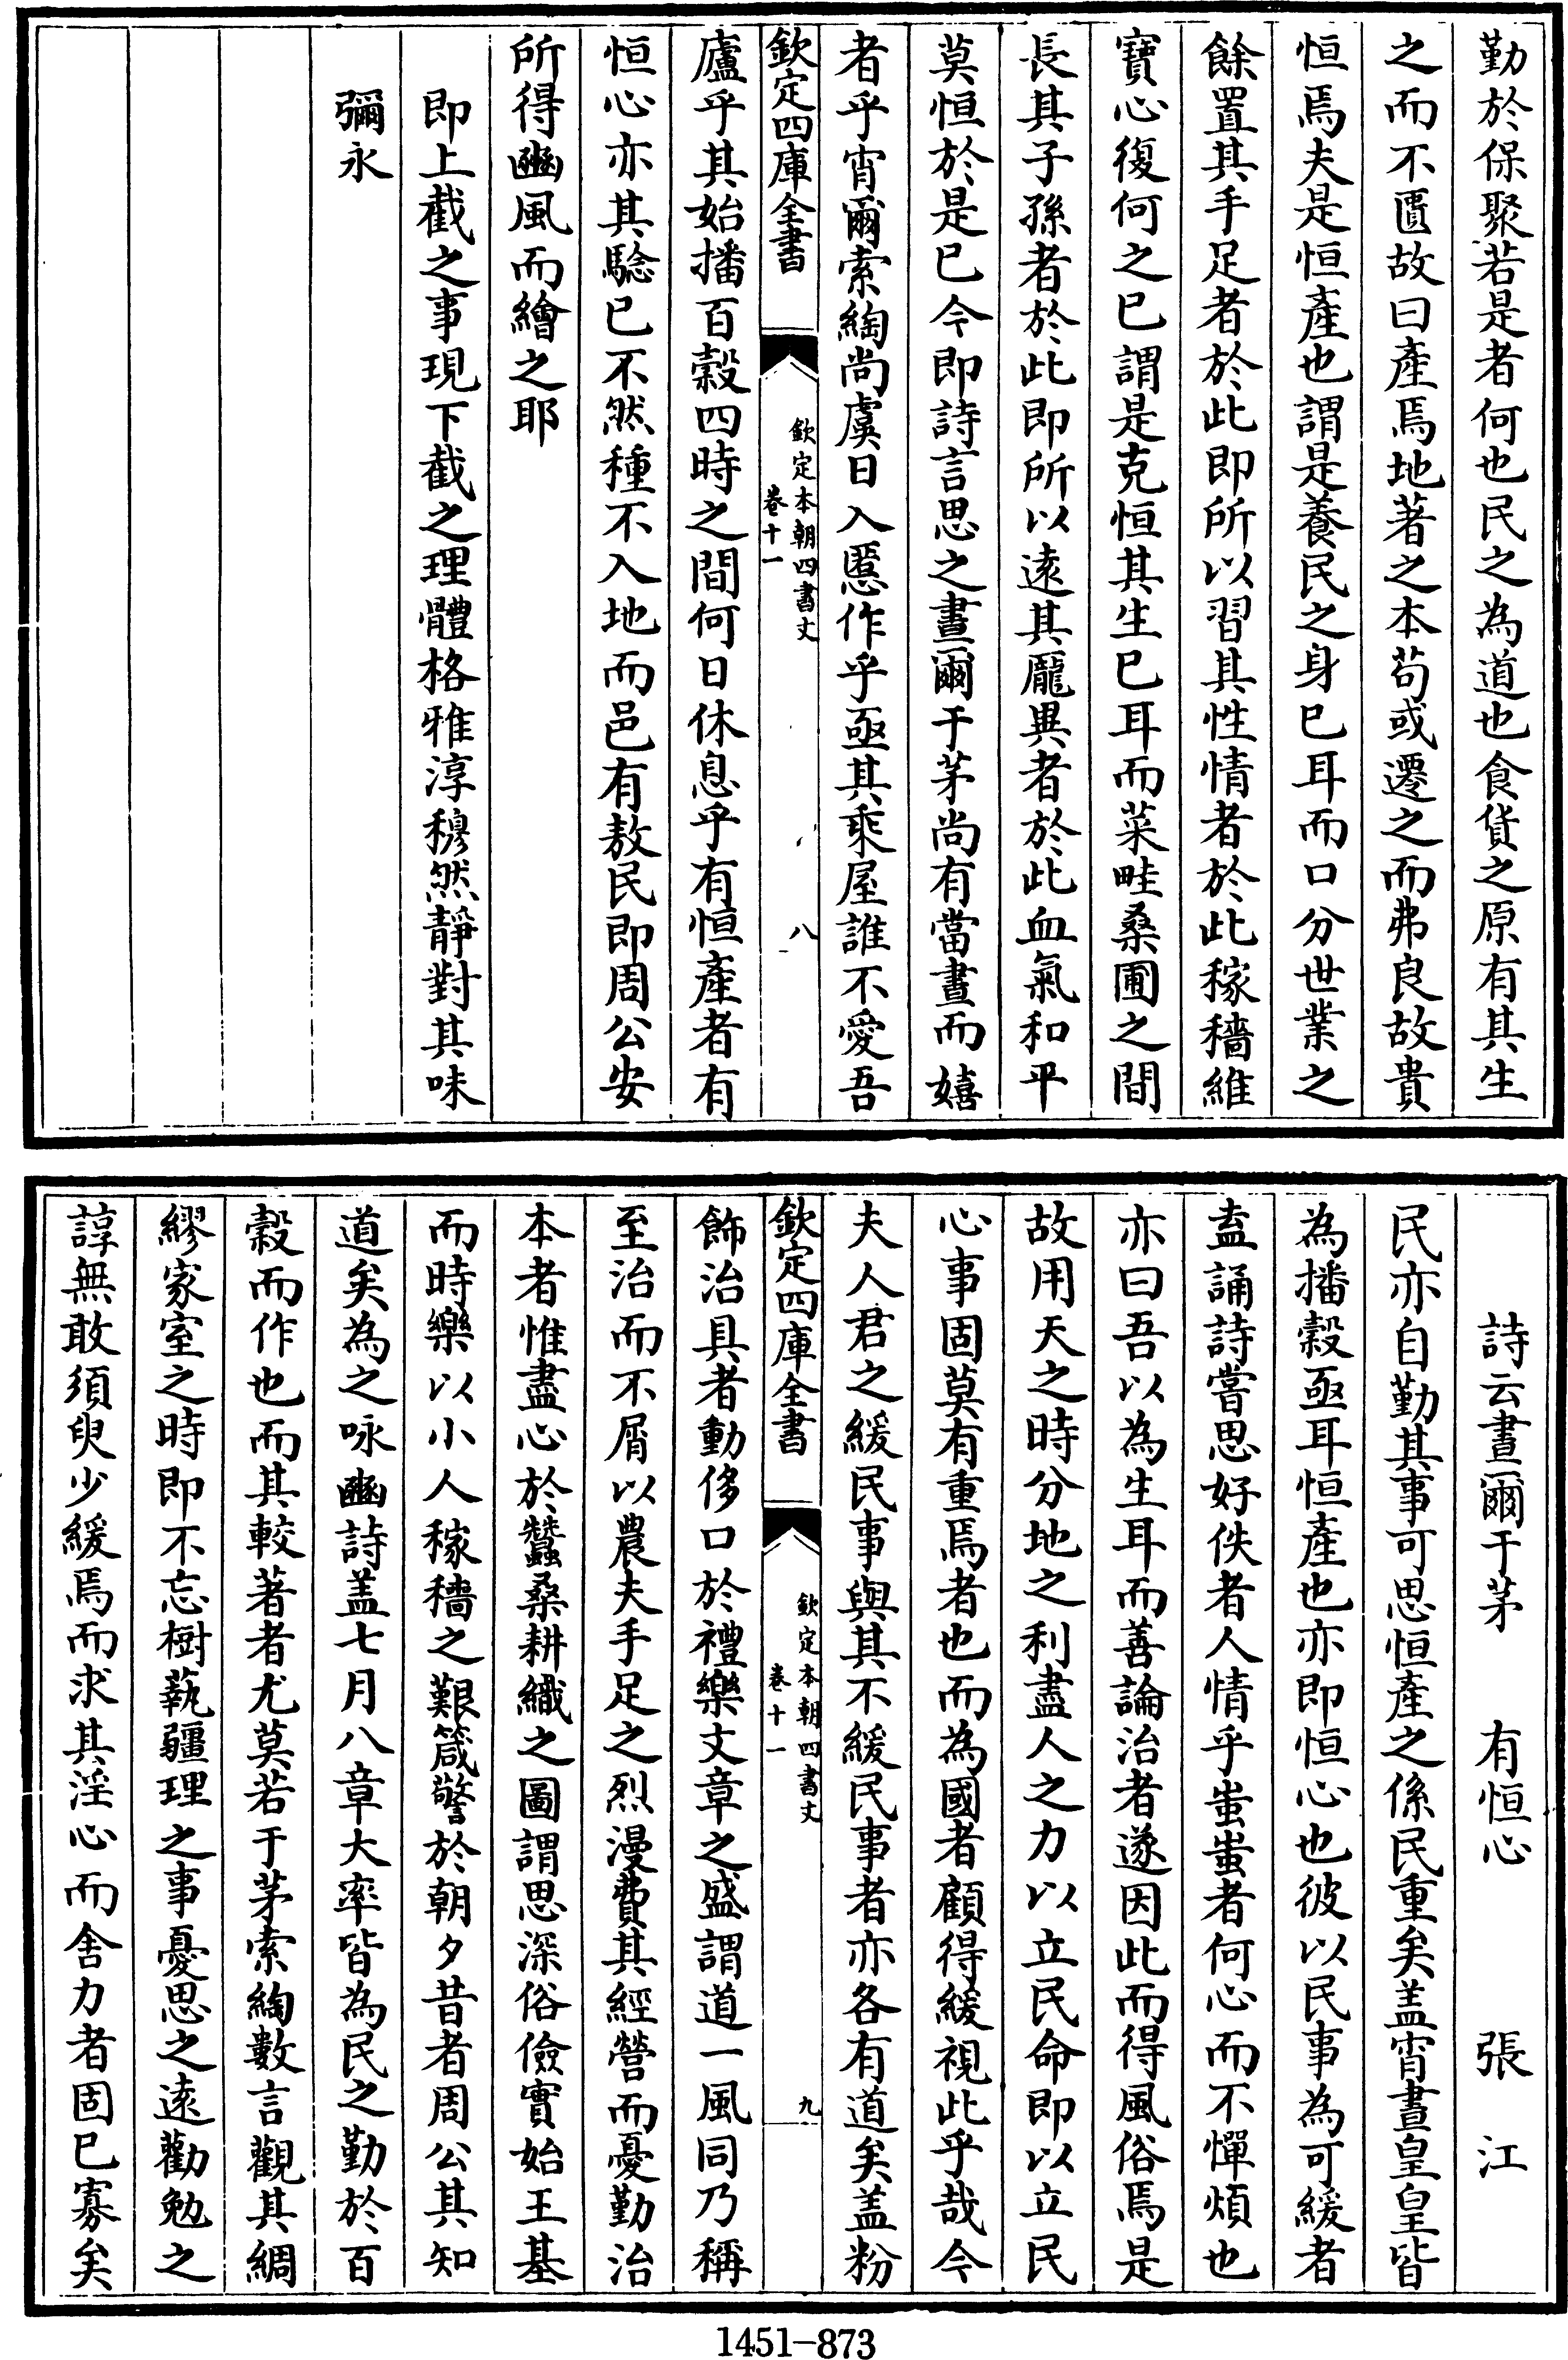 勤於保聚若是者何也民之為道也食貨之原有其生
之而不匱故曰產焉地著之本苟或遷之而弗良故貴
恒焉夫是恒產也謂是養民之身已耳而口分世業之
餘置其手足者於此即所以習其性情者於此稼穡維
寶心復何之已謂是克恒其生已耳而菜畦桑圃之間
長其子孫者於此即所以遠其厖異者於此血氣和平
莫恒於是已今即詩言思之晝爾于茅尚有當晝而嬉
者乎宵爾索綯尚虞日入慝作乎亟其乘屋誰不愛吾
欽定四庫全書
欽定本朝四書文
卷十一
八
廬乎其始播百穀四時之間何日休息乎有恒產者有
恒心亦其騐已不然種不入地而邑有敖民即周公安
所得豳風而繪之耶
即上截之事現下截之理體格雅淳穆然靜對其味
彌永
詩云晝爾于茅 有恒心 張江
民亦自勤其事可思恒產之係民重矣盖宵晝皇皇皆
為播穀亟耳恒產也亦即恒心也彼以民事為可緩者
盍誦詩嘗思好佚者人情乎蚩蚩者何心而不憚煩也
亦曰吾以為生耳而善論治者遂因此而得風俗焉是
故用天之時分地之利盡人之力以立民命即以立民
心事固莫有重焉者也而為國者顧得緩視此乎哉今
夫人君之緩民事與其不緩民事者亦各有道矣盖粉
欽定四庫全書
欽定本朝四書文
卷十一
九
飾治具者動侈口於禮樂文章之盛謂道一風同乃稱
至治而不屑以農夫手足之烈漫費其經營而憂勤治
本者惟盡心於蠶桑耕織之圖謂思深俗儉實始王基
而時樂以小人稼穡之艱箴警於朝夕昔者周公其知
道矣為之咏豳詩盖七月八章大率皆為民之勤於百
穀而作也而其較著者尤莫若于茅索綯數言觀其綢
繆家室之時即不忘樹蓺疆理之事憂思之遠勸勉之
諄無敢須臾少緩焉而求其淫心而舍力者固已寡矣
1451-873